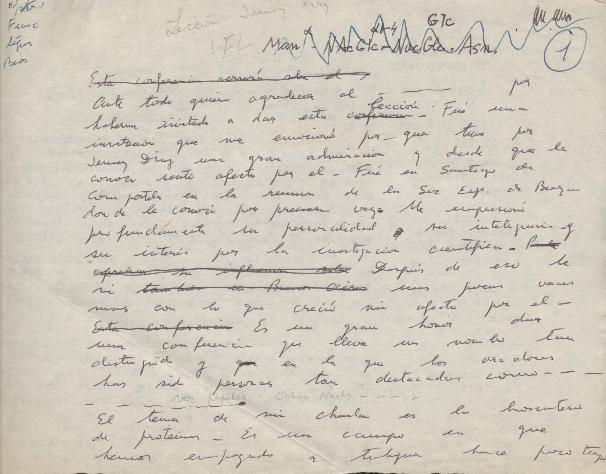 Lección Jiménez Díaz
Glc
Man NAcGlc - NAcGlc Asn.
1
Esta conferencia versará sobre el
Ante todo quiero agradecer al por
haberme invitado a dar esta conferencia Lección - Fué una
invitación que me emocionó por-que tuve por
Jimenez Diaz una gran admiración y desde que le
conocí sentí afecto por el - Fué en Santiago de
Compostela en la reunion de la Soc Esp. de Bioq
donde le conocí por primera vez. Me impresionó
profundamente su personalidad su inteligencia y
su interés por la investigación científica -
Después de eso le
vi tambien en Buenos Aires unas pocas veces
mas con lo que creció mi afecto por el -
Esta conferencia Es un gran honor dar
una conferencia que lleva un nombre tan
distinguido y en la que los oradores
han sido personas tan destacadas como - - -
Ochoa
El tema de mi charla es la biosintesis
de proteinas - Es un campo en que
hemos empezado a trabajar hace poco tiempo